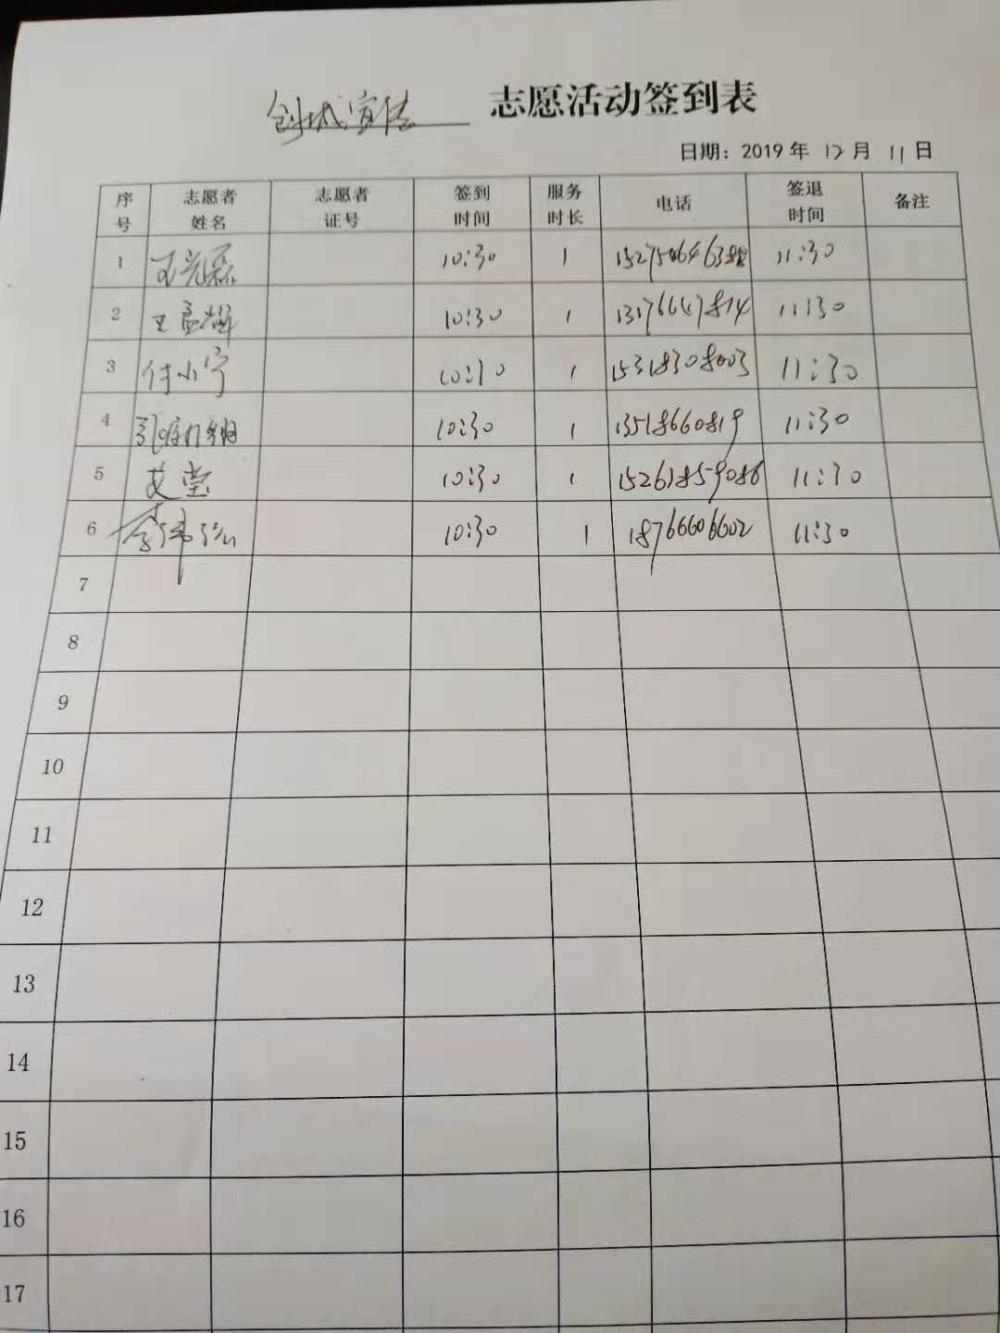 创城宣传 志愿活动签到表
日期：2019年 12月 11日
序号 志愿者姓名 志愿者证号 签到时间 服务时长 电话 签退时间 备注
1 王光磊 10:30 1 11:30
2 王 10:30 1 13176647814 11:30
3 付小宁 10:30 1 15318308003 11:30
4 10:30 1 13518660819 11:30
5 艾莹 10:30 1 15261859086 11:30
6 10:30 1 18766606602 11:30
7
8
9
10
11
12
13
14
15
16
17